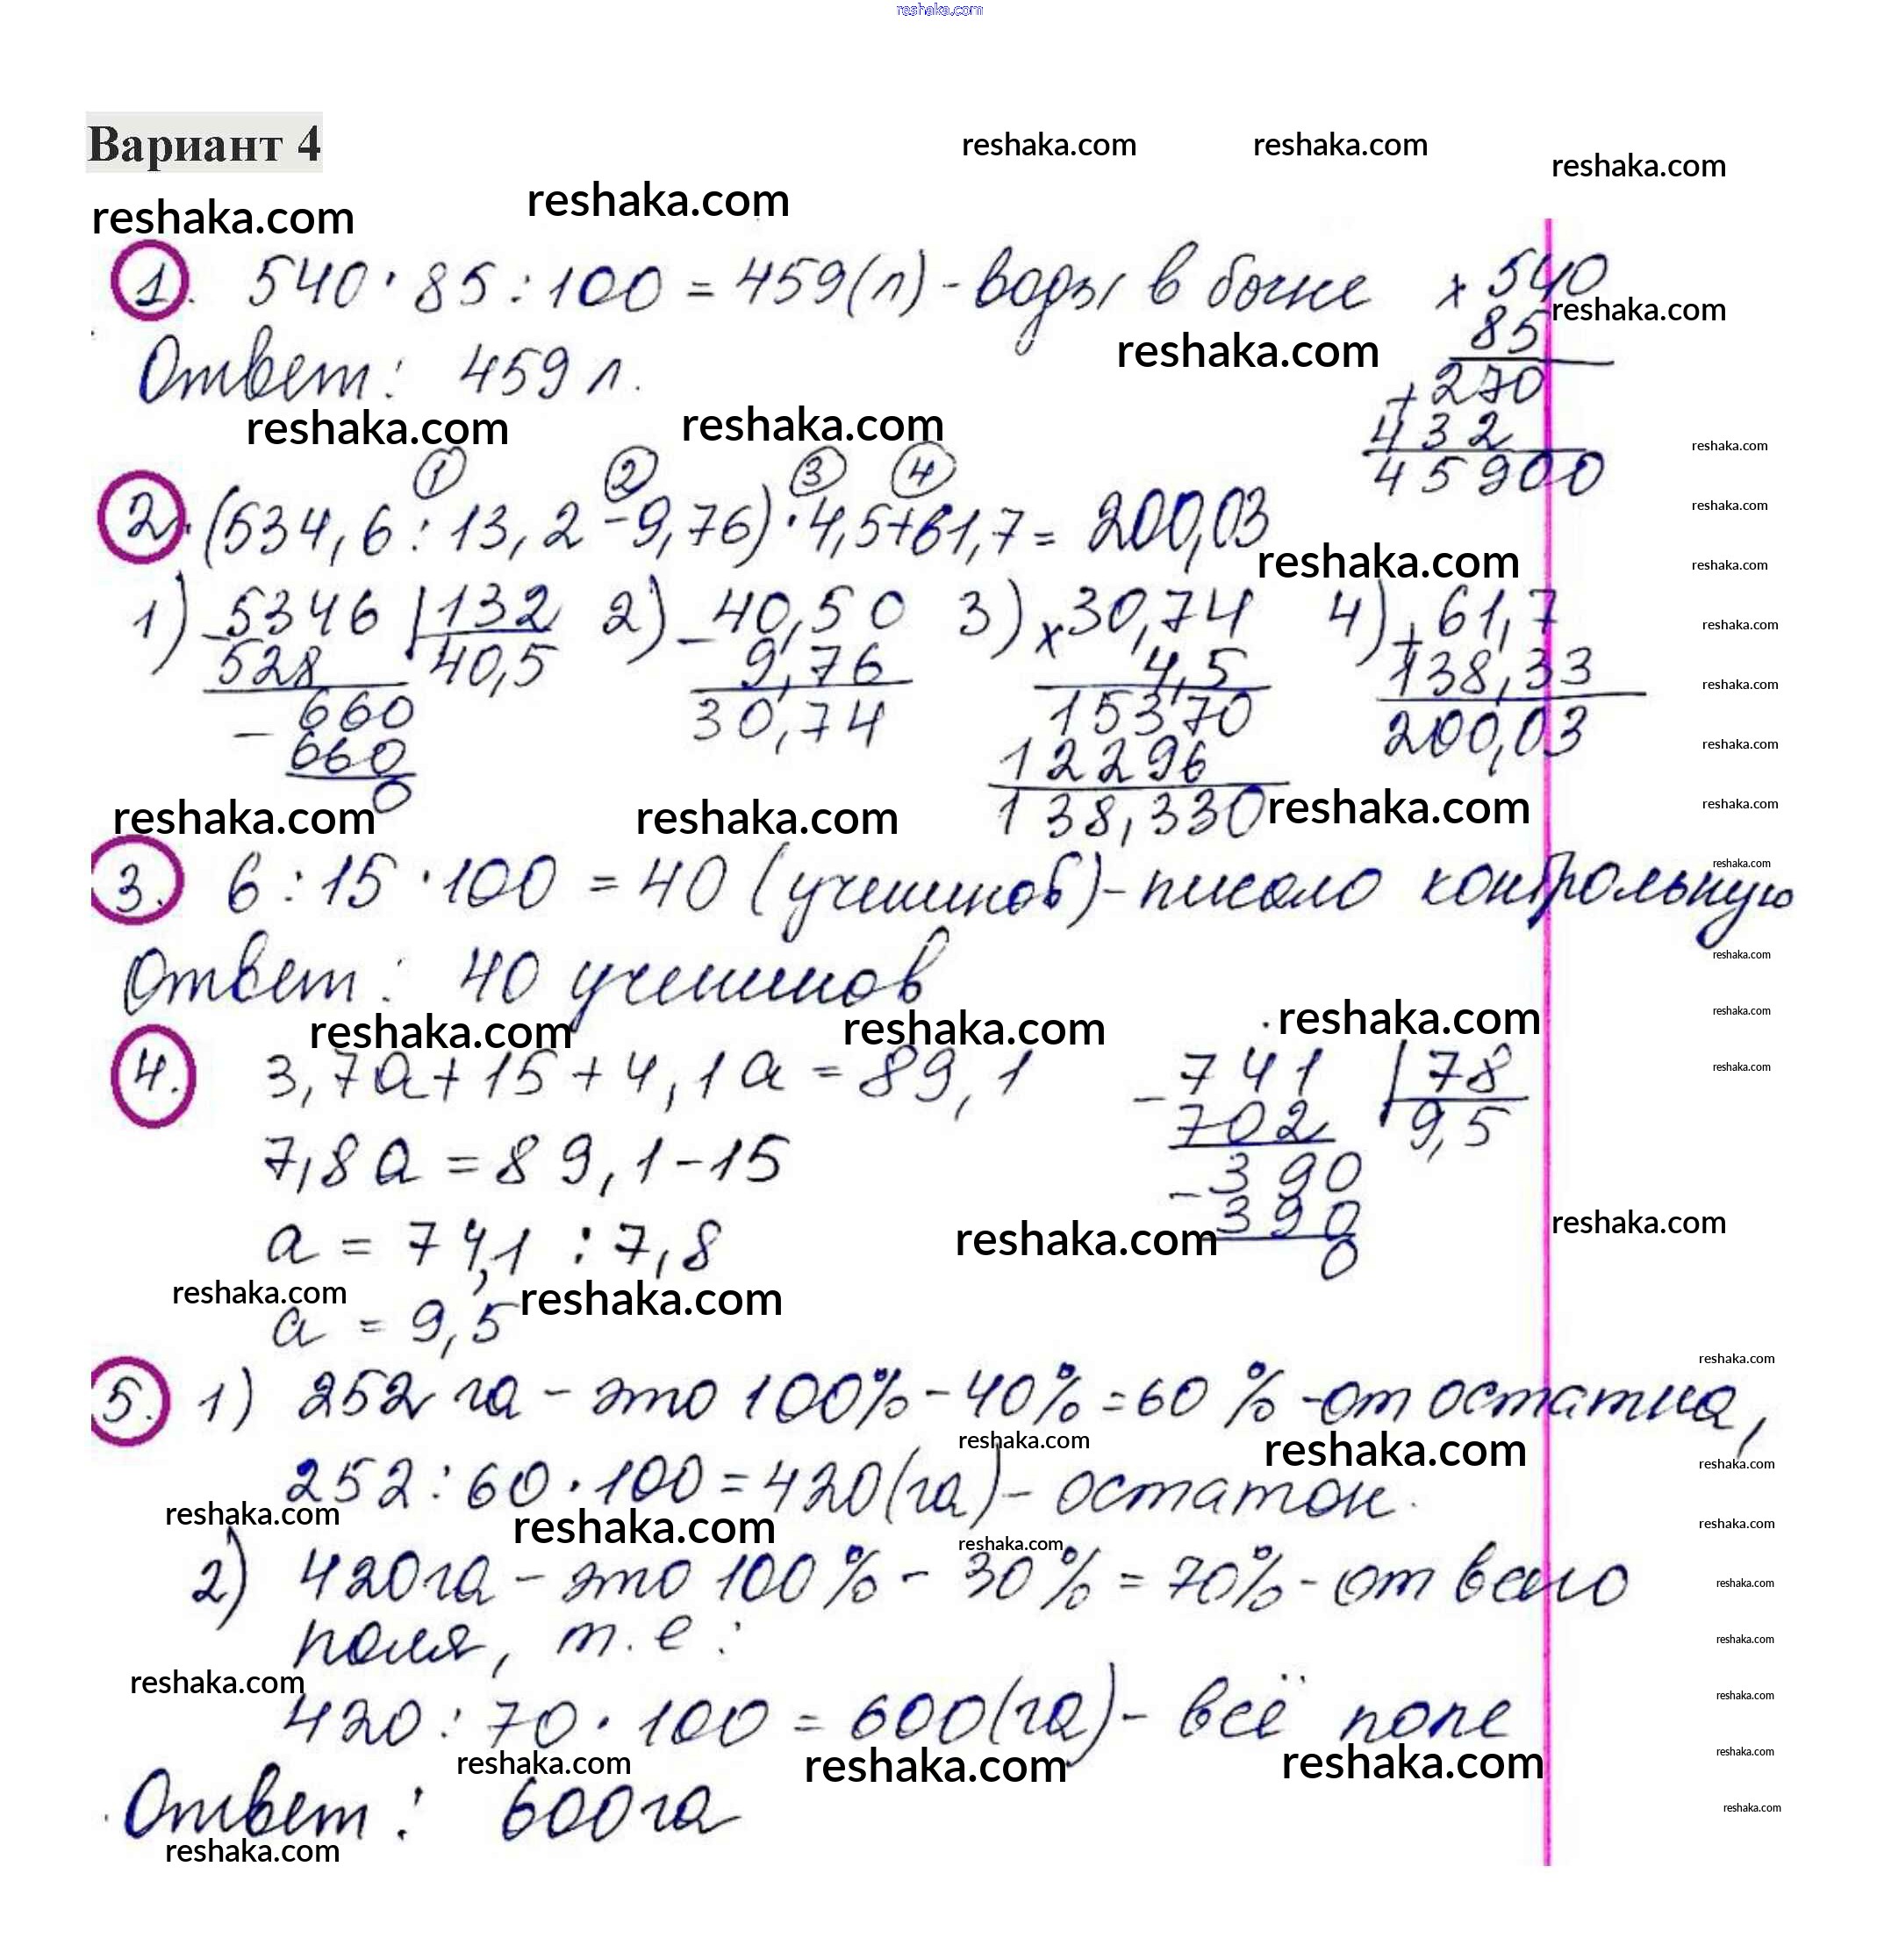 reshaka.com
Вариант 4
reshaka.com reshaka.com reshaka.com
reshaka.com reshaka.com
1. 540 · 85 : 100 = 459 (л) - воды в бочке
× 540
85
reshaka.com
+ 270
432
45900
reshaka.com
Ответ: 459 л.
reshaka.com reshaka.com
reshaka.com
reshaka.com
reshaka.com
1 2 3 4
2. (534,6 : 13,2 - 9,76) · 4,5 + 61,7 = 200,03
reshaka.com
1) - 5346 | 132
528 40,5
- 660
660
0
2) - 40,50
9,76
30,74
3) × 30,74
4,5
15370
12296
138,330
4) + 61,7
138,33
200,03
reshaka.com
reshaka.com
reshaka.com
reshaka.com
reshaka.com reshaka.com reshaka.com
reshaka.com
3. 6 : 15 · 100 = 40 (учеников) - писало контрольную
reshaka.com
Ответ: 40 учеников
reshaka.com reshaka.com reshaka.com
reshaka.com
reshaka.com
4. 3,7а + 15 + 4,1а = 89,1
7,8а = 89,1 - 15
а = 74,1 : 7,8
а = 9,5
- 741 | 78
702 9,5
- 390
390
0
reshaka.com reshaka.com
reshaka.com reshaka.com
reshaka.com
5. 1) 252 га - это 100% - 40% = 60% - от остатка,
reshaka.com reshaka.com
reshaka.com
252 : 60 · 100 = 420 (га) - остаток.
reshaka.com reshaka.com reshaka.com
reshaka.com
2) 420 га - это 100% - 30% = 70% - от всего
reshaka.com
поля, т.е:
reshaka.com
reshaka.com
reshaka.com
420 : 70 · 100 = 600 (га) - всё поле
reshaka.com reshaka.com reshaka.com
reshaka.com
Ответ: 600 га
reshaka.com
reshaka.com